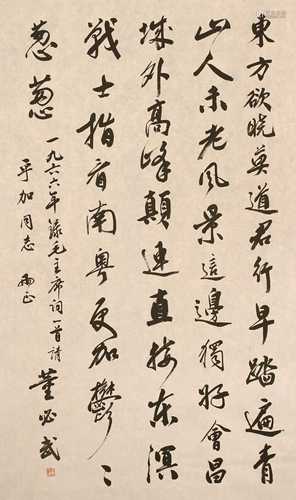 東方欲晓莫道君行早踏遍青
山人未老风景這边獨好會昌
城外高峰顛连直接东溟
戰士指看南粤更加鬱〻
葱葱
一九六六年錄毛主席词一首请
平加同志雨正
董必武